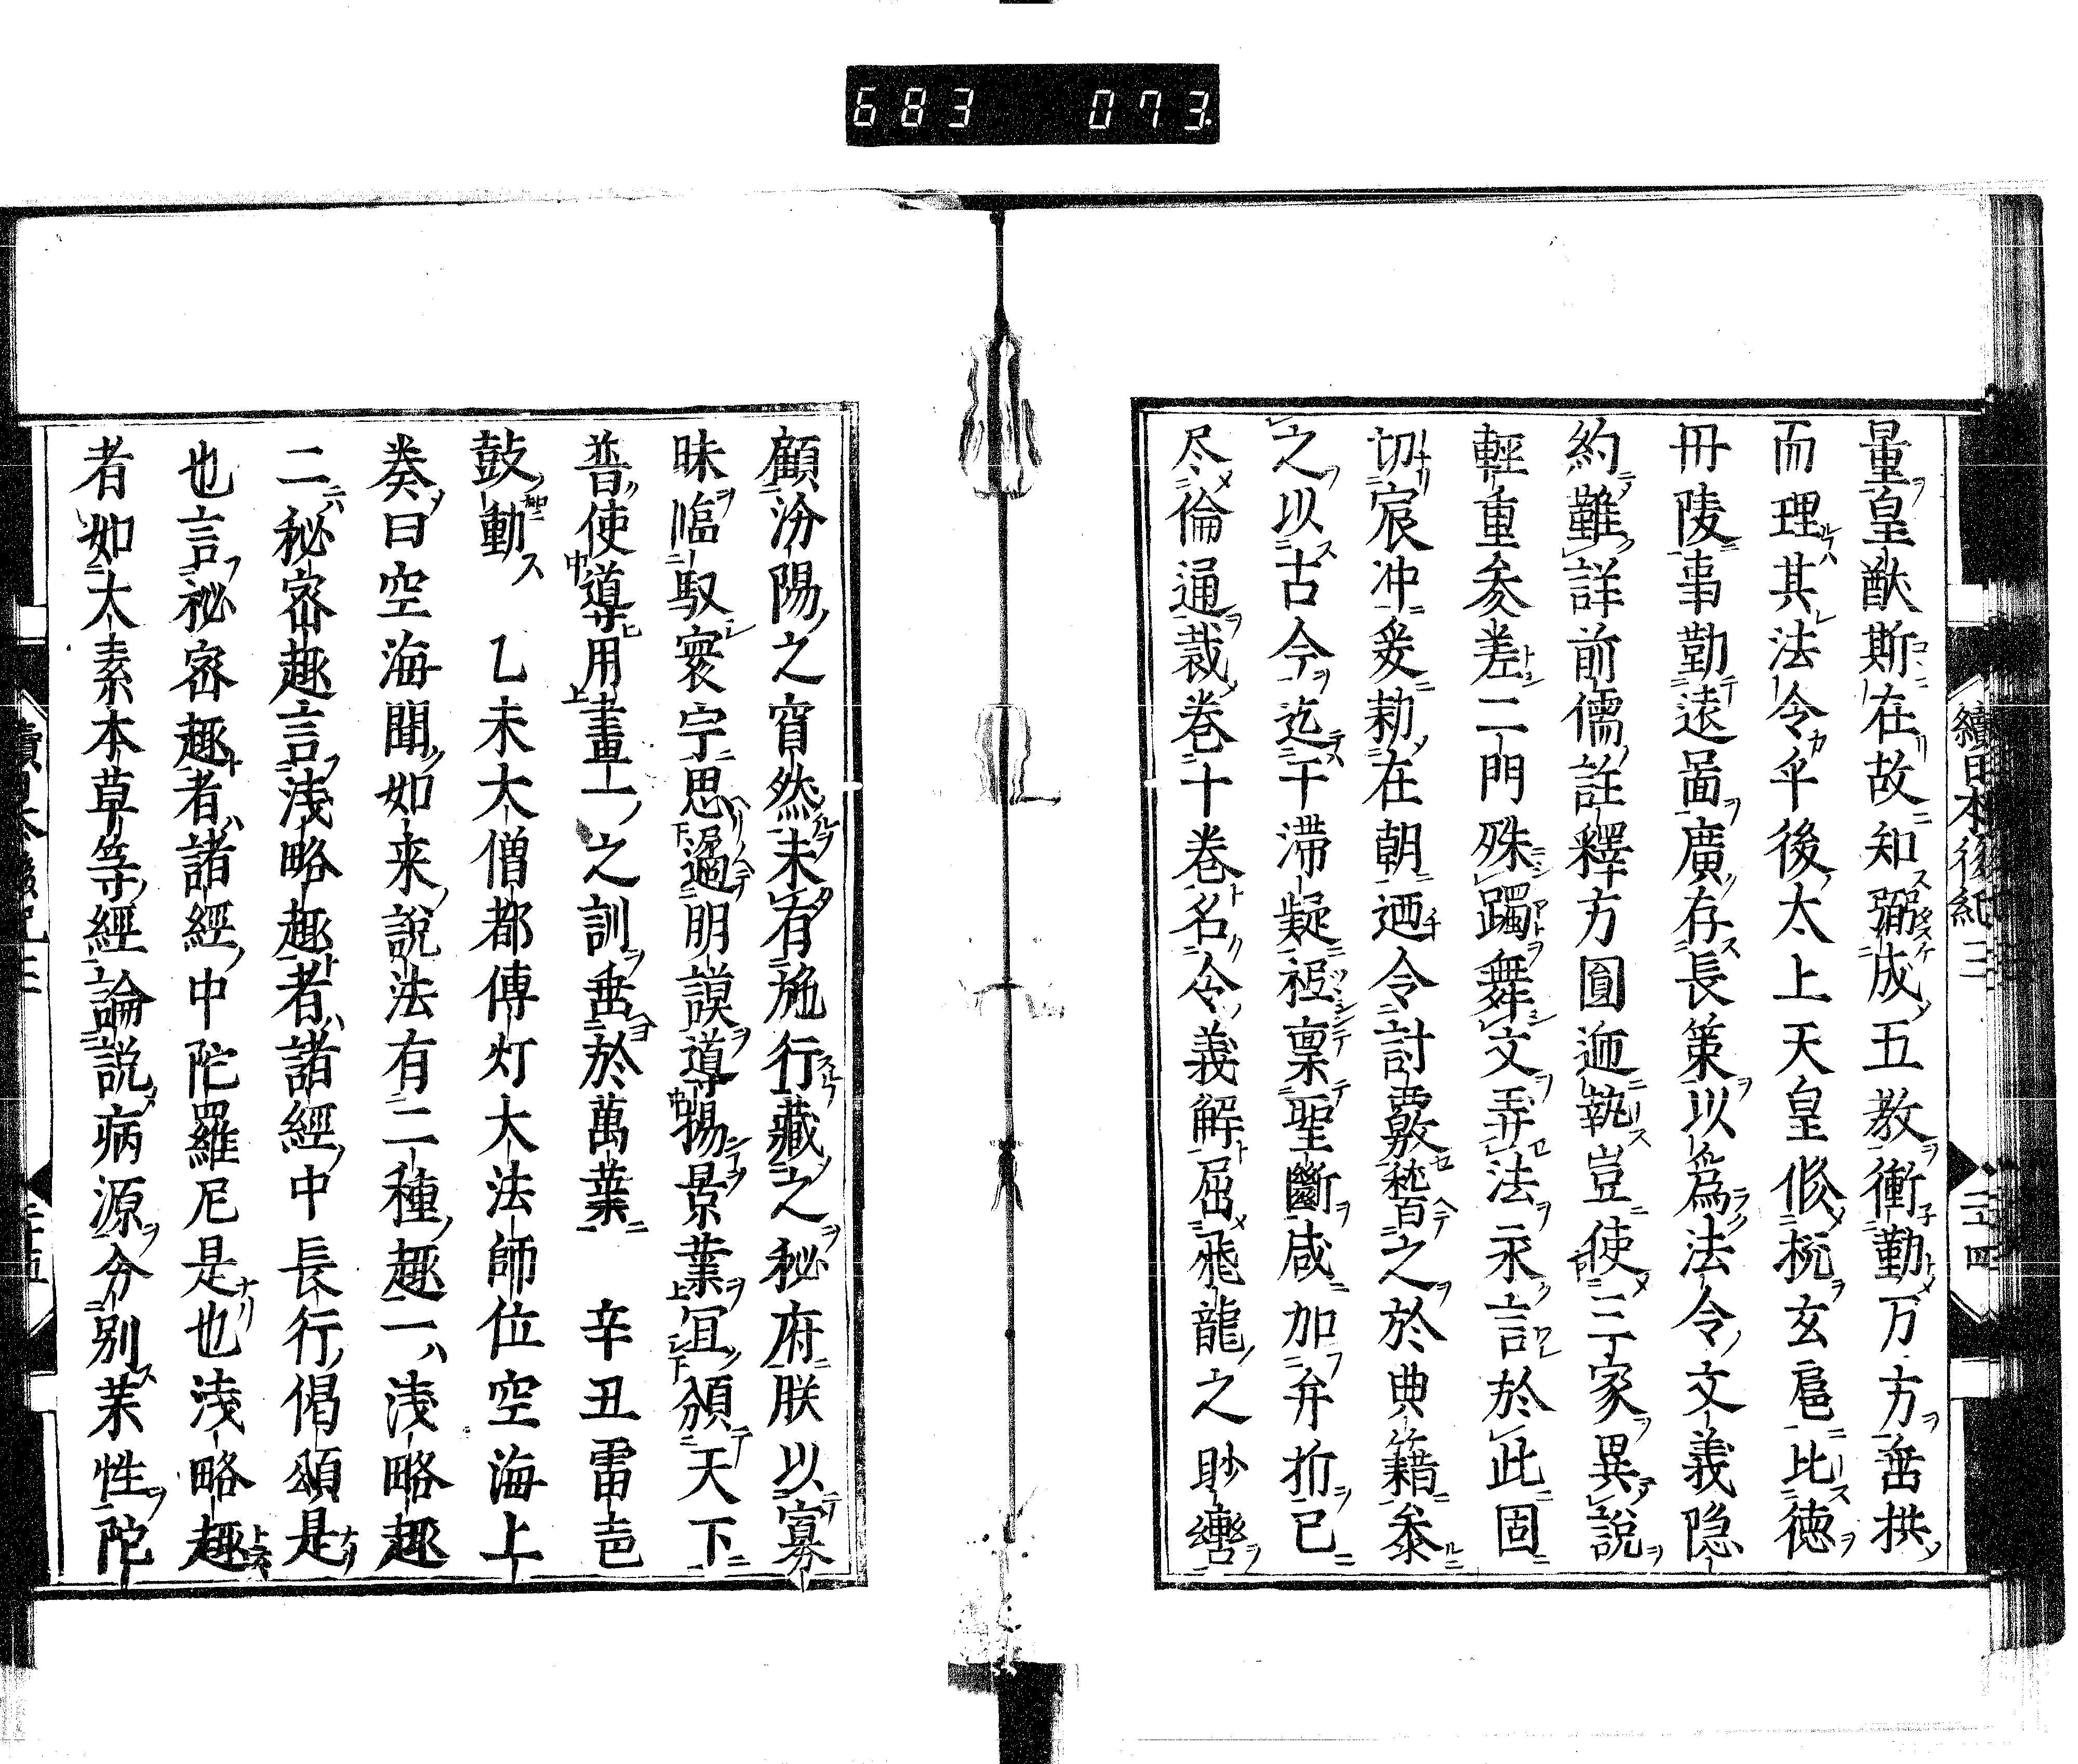 683 073.
量皇猷斯在故知彌成五教衝勤万方垂拱
而理其法令乎後太上天皇修抚玄扈比徳
冊陵事勤遠啚廣存長策以爲法令文義隠
約難詳前儒註釋方圓遞執豈使三家異説
輕重叅差二門殊躅舞文弄法永言於此固
切宸冲爰勅在朝廼令討覈嵇之於典籍叅
之以古今迄于滞疑祗禀聖斷咸加弁折已
尽倫通裁巻十巻名令義解屈飛龍之眇轡
顧汾陽之窅然未有施行藏之秘府朕以寡
昧臨馭寰宇思遏明謨導揚景業冝頒天下
普使導用畫一之訓垂於萬葉 辛丑雷音
鼓動 乙未大僧都傳灯大法師位空海上
奏曰空海聞如来説法有二種趣一浅略趣
二秘密趣言浅略趣者諸經中長行偈頌是
也言秘密趣者諸經中陀羅尼是也浅略趣
者如太素本草等經論説病源分別茱性陀
續日本後紀三
二十四